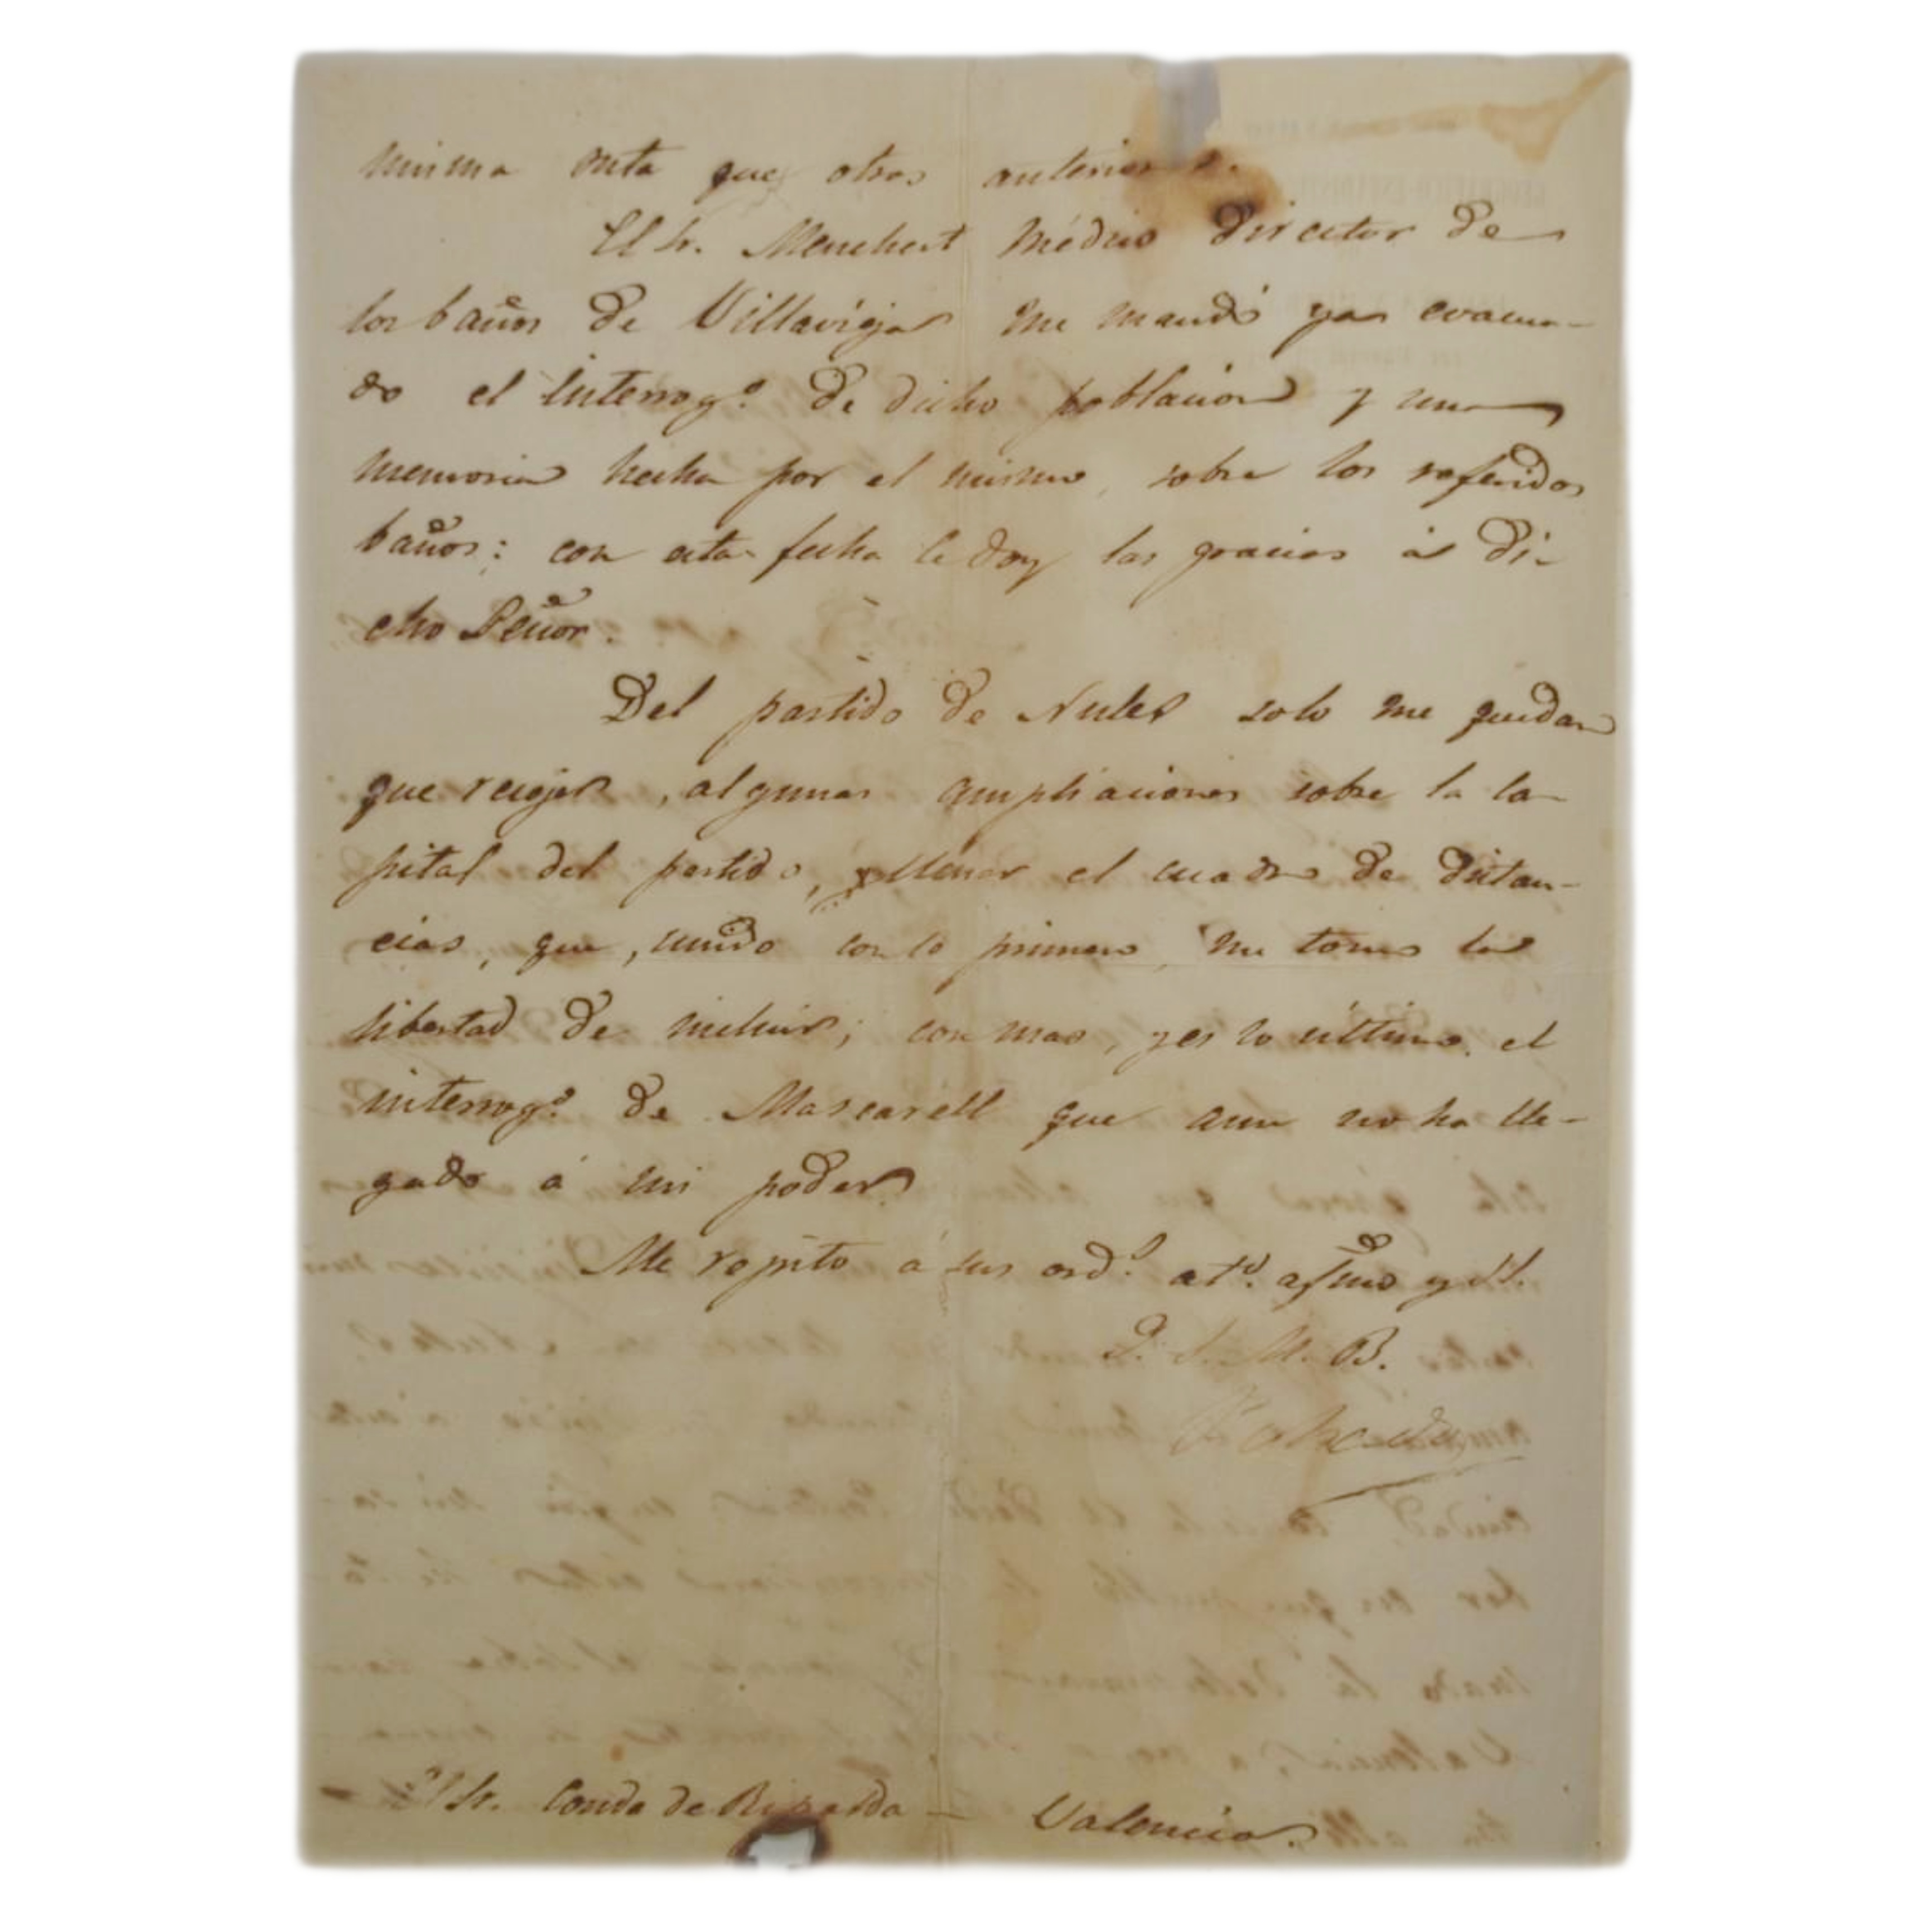 misma ruta que otros anteriores.
El Sr. Menchert Médico director de
los baños de Villavieja me mandó ya evacua-
do el interrogº. de dicho población y una
memoria hecha por el mismo, sobre los referidos
baños; con esta fecha le doy las gracias á di-
cho Señor.
Del partido de Nules solo me quedan
que recojer, algunas ampliaciones sobre la ca-
pital del partido, y llenar el cuadro de distan-
cias, que, unido con lo primero, me tomo la
libertad de incluir; con mas, y es lo último, el
interrogº. de Mascarell que aun no ha lle-
gado á mi poder.
Me repito á sus ords. atº. afmo y SS.
Q. S. M. B.
Sr. Conde de Ripalda — Valencia.